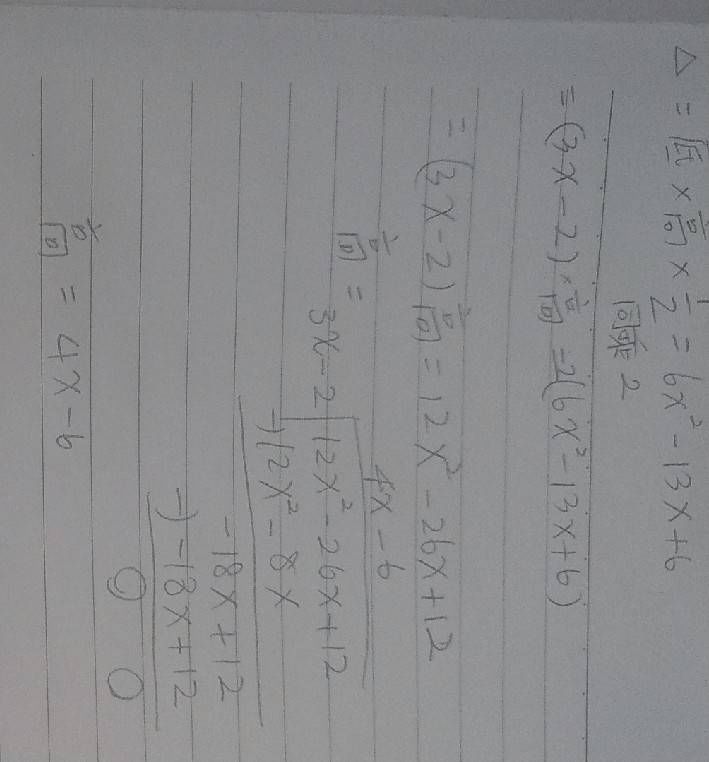 △ = 底 × 高 × 1/2 = 6x² - 13x + 6
同乘 2
= (3x - 2) × 高 = 2(6x² - 13x + 6)
= (3x - 2)高 = 12x² - 26x + 12
4x - 6
高 = 3x - 2 | 12x² - 26x + 12
-) 12x² - 8x
-18x + 12
-) -18x + 12
0 0
高 = 4x - 6